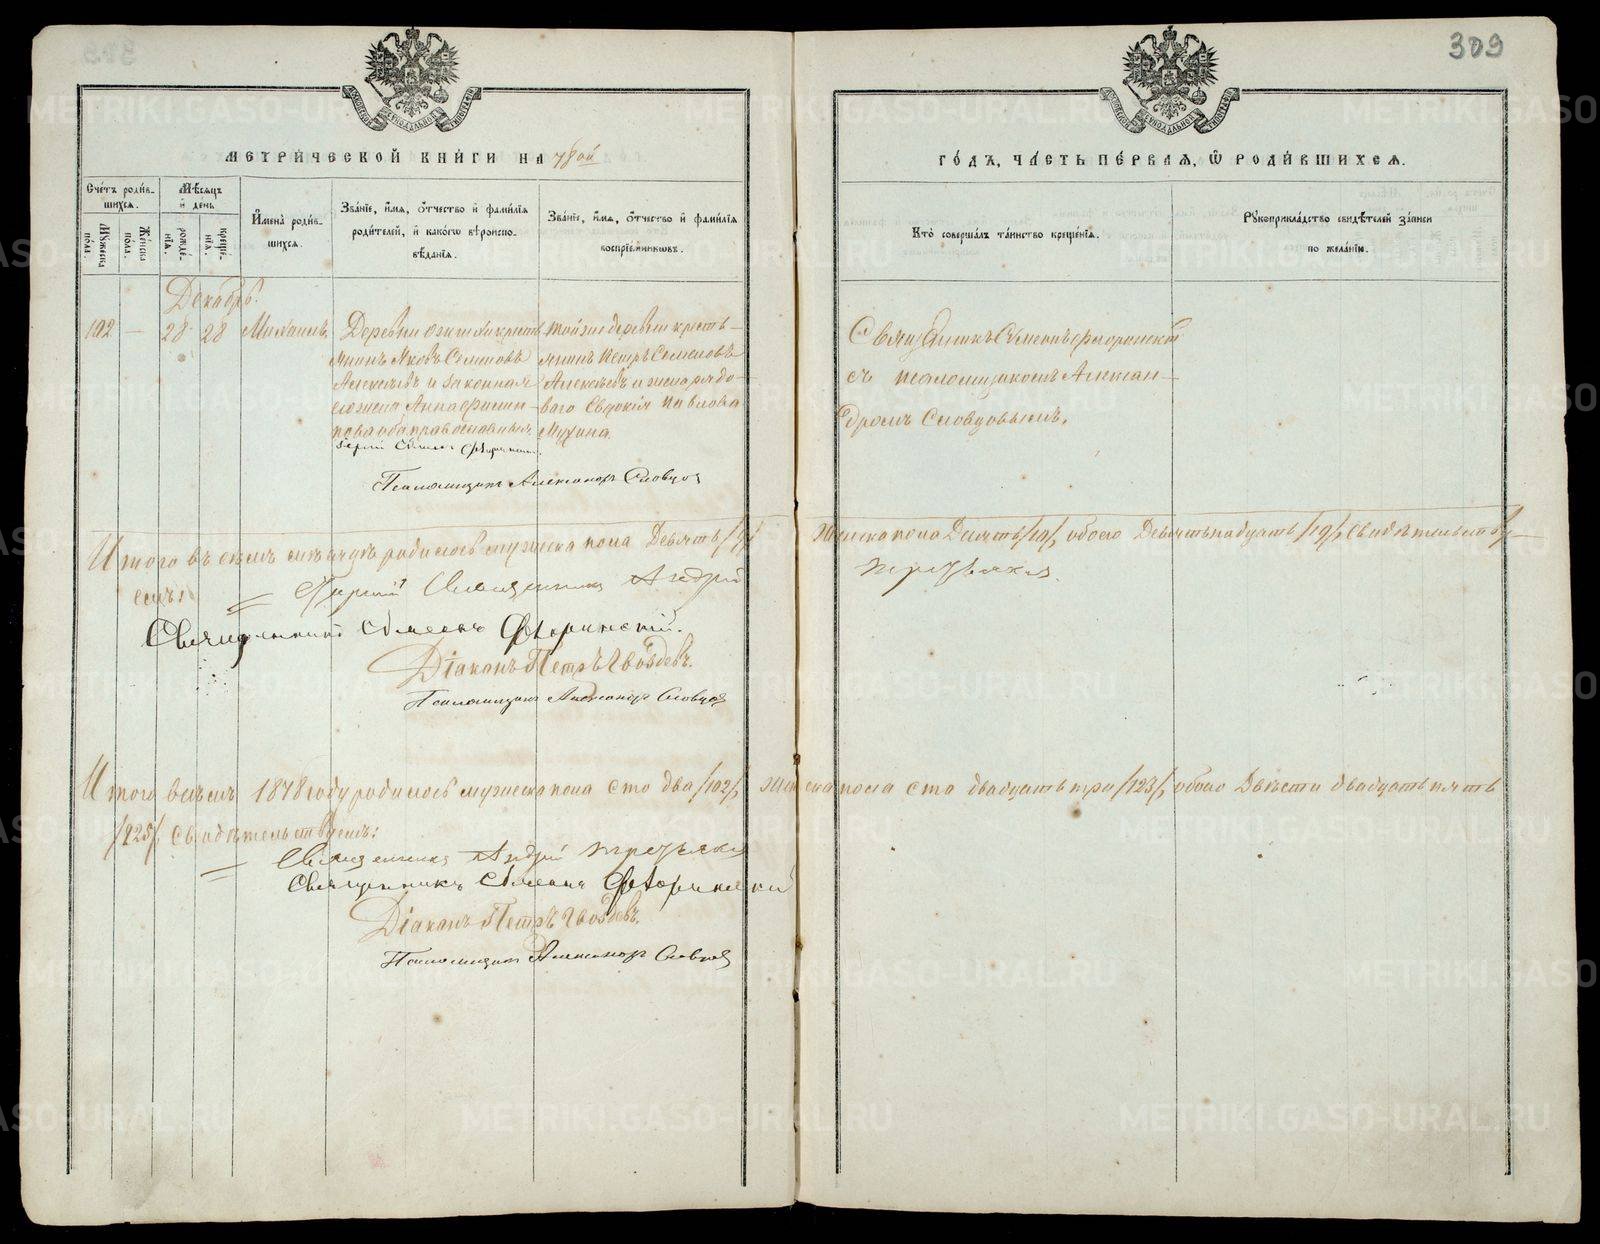 309
МЕТРИЧЕСКОЙ КНИГИ НА 78ой
ГОДЪ, ЧАСТЬ ПЕРВАЯ, Ѡ РОДИВШИХСЯ.
Счетъ родив-
шихся.
Мужеска
пола.
Женска
пола.
Мѣсяцъ
и день
рожде-
нія.
креще-
нія.
Имена родив-
шихся.
Званіе, имя, отчество и фамилія
родителей, и какого вѣроиспо-
вѣданія.
Званіе, имя, отчество и фамилія
воспріемниковъ.
Кто совершалъ таинство крещенія.
Рукоприкладство свидѣтелей записи
по желанію.
Декабрь.
102 — 28 28 Михаилъ
Деревни
янинъ Яковъ Семеновъ
Алексѣевъ и законная
его жена Анна
оба православныя.
той же деревни кресть-
янинъ Петръ Семеновъ
Алексѣевъ и жена рядо-
ваго Евдокія Павлова
Мухина.
Священникъ Сѵмеонъ Флоринскій
съ псаломщикомъ Алексан-
дромъ Словцовымъ.
Псаломщикъ Александръ Словцов
Итого въ семъ мѣсяцѣ родилось мужеска пола Девять /9/
женска пола Десять /10/, обоего Девятьнадцать /19/, Свидѣтельству-
емъ:
Священникъ Андрей
Священникъ Сѵмеонъ Флоринскій.
Діаконъ Петръ Гвоздевъ.
Псаломщикъ Александръ Словцов
Итого въ семъ 1878 году родилось мужеска пола сто два /102/, женска пола сто двадцать три /123/, обоего Двѣсти двадцать пять
/225/, свидѣтельствуемъ:
Священникъ Андрей
Священникъ Сѵмеонъ Флоринскій
Діаконъ Петръ Гвоздевъ.
Псаломщикъ Александръ Словцов
METRIKI.GASO-URAL.RU